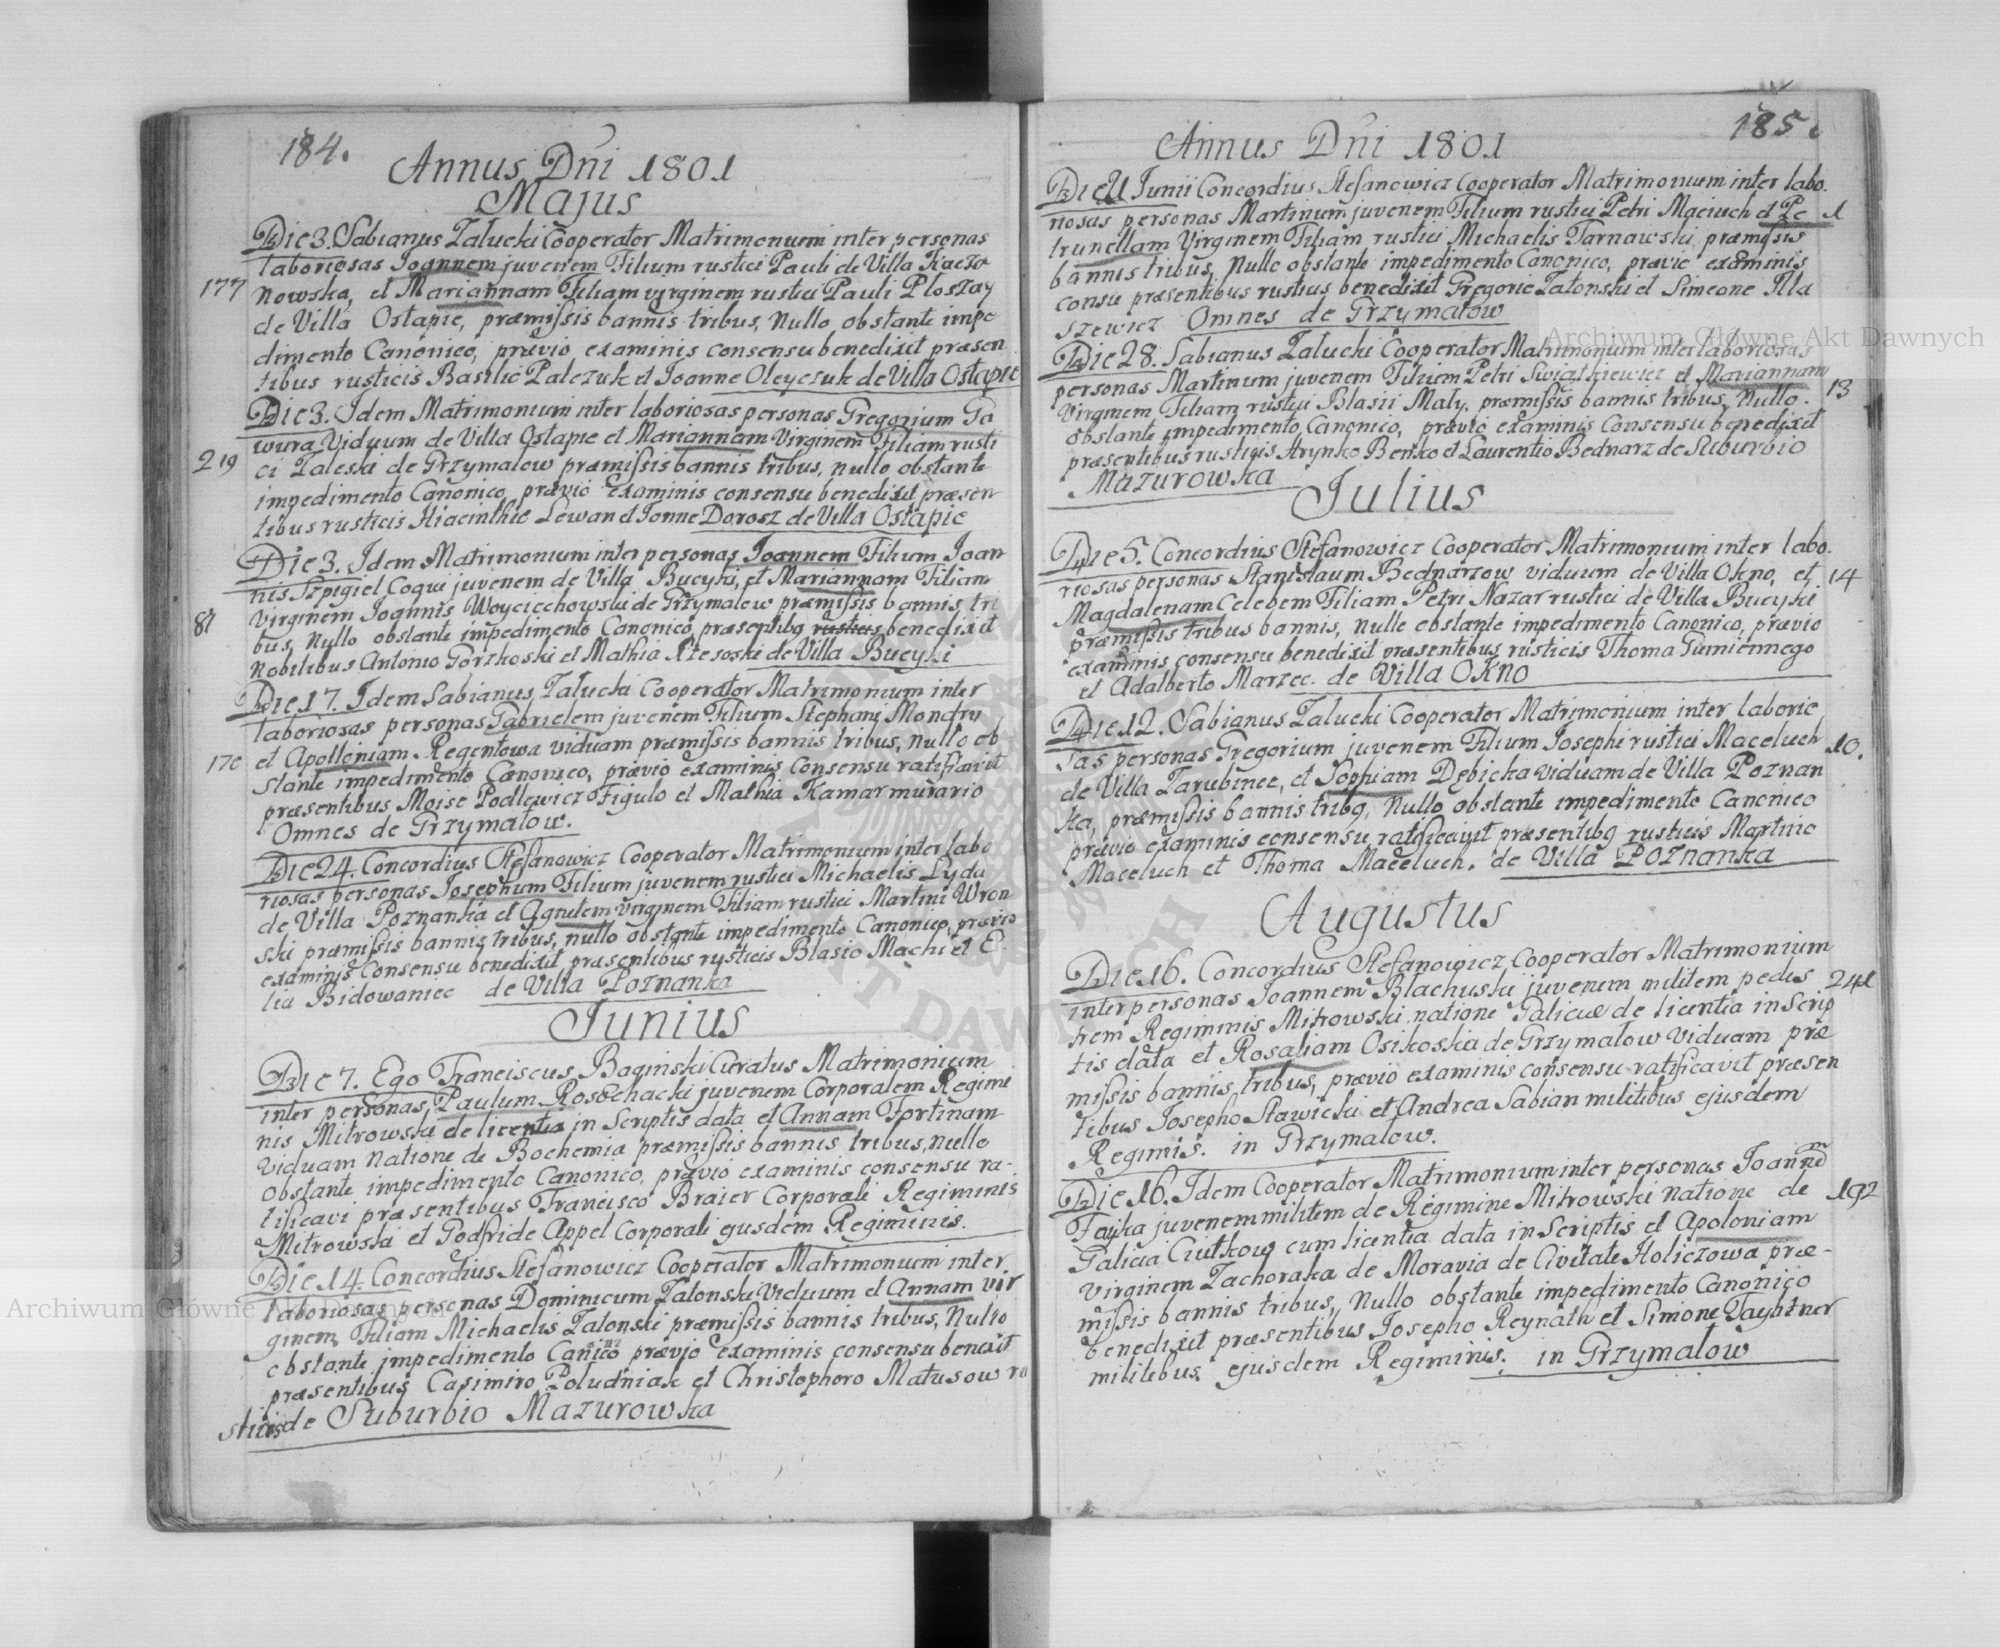 184.
Annus Dni 1801
Majus
Die 3. Sabianus Zalucki Cooperator Matrimonium inter personas
laboriosas Joannem juvenem Filium rustici Pauli de Villa Kaczo
177
nowska, et Mariannam Filiam virginem rustici Pauli Ploszay
de Villa Ostapie, præmissis bannis tribus, Nullo obstante impe
dimento Canonico, prævio examinis consensu benedixit præsen
tibus rusticis Basilio Palczuk et Joanne Oleyczuk de Villa Ostapie
Die 3. Idem Matrimonium inter laboriosas personas Gregorium Ga
wura Viduum de Villa Ostapie et Mariannam Virginem Filiam rusti
219
ci Zaleski de Grzymalow præmissis bannis tribus, nullo obstante
impedimento Canonico, prævio examinis consensu benedixit præsen
tibus rusticis Hiacinthie Lewan et Jonne Dorosz de Villa Ostapie
Die 3. Idem Matrimonium inter personas Joannem Filium Joan
nis Szpigiel Coqui juvenem de Villa Bucyki, et Mariannam Filiam
virginem Joannis Woyciechowski de Grzymalow præmissis bannis tri
81
bus, Nullo obstante impedimento Canonico præsentibq rusticis benedixit
Nobilibus Antonio Gorzkoski et Mathia Rzesoski de Villa Bucyki
Die 17. Idem Sabianus Zalucki Cooperator Matrimonium inter
laboriosas personas Gabrielem juvenem Filium Stephani Mondry
170
et Apolloniam Regentowa viduam præmissis bannis tribus, nullo ob
stante impedimento Canonico, prævio examinis consensu ratificavit
præsentibus Moise Podlewicz Figulo et Mathia Kamar murario
Omnes de Grzymalow.
Die 24. Concordius Stefanowicz Cooperator Matrimonium inter labo
riosas personas Josephum Filium juvenem rustici Michaelis Lyda
de Villa Poznanka et Agnetem virginem Filiam rustici Martini Wron
ski præmissis bannis tribus, nullo obstante impedimento Canonico, prævio
examinis consensu benedixit præsentibus rusticis Blasio Machi et E
lia Bidowaniec de Villa Poznanka
Junius
Die 7. Ego Franciscus Baginski Curatus Matrimonium
inter personas, Paulum Rosochacki juvenem Corporalem Regimi
nis Mitrowski de licentia in Scriptis data et Annam Fortinam
viduam natione de Bochemia præmissis bannis tribus, nullo
obstante impedimento Canonico, prævio examinis consensu ra-
tificavi præsentibus Francisco Braier Corporali Regiminis
Mitrowski et Godfride Appel Corporali ejusdem Regiminis.
Die 14. Concordius Stefanowicz Cooperator Matrimonium inter
laboriosas personas Dominicum Zalonski Viduum et Annam vir
ginem Filiam Michaelis Zalonski præmissis bannis tribus, Nullo
obstante impedimento Canico prævio examinis consensu benexit
præsentibus Casimiro Poludniak et Christophoro Matusow ru
sticis de Suburbio Mazurowka
185.
Annus Dni 1801
Die 21 Junii Concordius Stefanowicz Cooperator Matrimonium inter labo.
riosas personas Martinum juvenem Filium rustici Petri Maciuch et Pe
1
trunellam Virginem Filiam rustici Michaelis Tarnawski præmissis
bannis tribus, Nullo obstante impedimento Canonico, prævio examinis
consu præsentibus rusticis benedixit Gregorio Zalonski et Simeone Illa
szewicz Omnes de Grzymalow
Die 28. Sabianus Zalucki Cooperator Matrimonium inter laboriosas
personas Martinum juvenem Filium Petri Swiątkiewicz et Mariannam
13
Virginem Filiam rustici Blasii Maly. præmissis bannis tribus, Nullo.
obstante impedimento Canonico, prævio examinis consensu benedixit
præsentibus rusticis Hrynko Benko et Laurentio Bednarz de Suburbio
Mazurowka
Julius
Die 5. Concordius Stefanowicz Cooperator Matrimonium inter labo.
riosas personas Stanislaum Bednarzow viduum de Villa Okno, et
14
Magdalenam Celebem Filiam Petri Nazar rustici de Villa Bucyki
præmissis tribus bannis, nullo obstante impedimento Canonico, prævio
examinis consensu benedixit præsentibus rusticis Thoma Gumiennego
et Adalberto Marzec. de Villa Okno
Die 12. Sabianus Zalucki Cooperator Matrimonium inter laborio
sas personas Gregorium juvenem Filium Josephi rustici Maceluch
10.
de Villa Zarubince, et Sophiam Dębicka viduam de Villa Poznan
ka, præmissis bannis tribq, Nullo obstante impedimento Canonico
prævio examinis consensu ratificavit præsentibq rusticis Martino
Maceluch et Thoma Maceluch. de Villa Poznanka
Augustus
Die 16. Concordius Stefanowicz Cooperator Matrimonium
inter personas Joannem Blachuski juvenem militem pedes
241
trem Regiminis Mitrowski natione Galiciæ de licentia in Scrip
tis data et Rosaliam Osikoska de Grzymalow Viduam præ
missis bannis tribus, prævio examinis consensu ratificavit præsen
tibus Josepho Stawicki et Andrea Sabian militibus ejusdem
Regimis. in Grzymalow.
Die 16. Idem Cooperator Matrimonium inter personas Joannem
Fayka juvenem militem de Regimine Mitrowski natione de
192
Galicia Ciutkow cum licentia data in Scriptis et Apoloniam
virginem Zachoraka de Moravia de Civitate Holiczowa præ-
missis bannis tribus, Nullo obstante impedimento Canonico
benedixit præsentibus Josepho Reynath et Simone Tayhtner
militibus ejusdem Regiminis. in Grzymalow
Archiwum Główne Akt Dawnych
Archiwum Główne Akt Dawnych